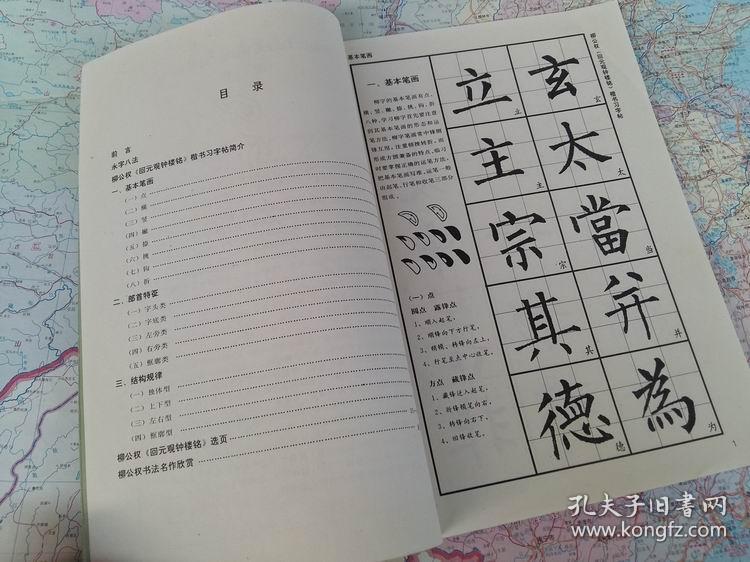 目 录
前 言
永字八法
柳公权《回元观钟楼铭》楷书习字帖简介
一、基本笔画
（一）点
（二）横
（三）竖
（四）撇
（五）捺
（六）挑
（七）钩
（八）折
二、部首特征
（一）字头类
（二）字底类
（三）左旁类
（四）右旁类
（五）框廓类
三、结构规律
（一）独体型
（二）上下型
（三）左右型
（四）框廓型
柳公权《回元观钟楼铭》选页
柳公权书法名作欣赏
基本笔画
一、基本笔画
柳字的基本笔画有点、
横、竖、撇、捺、挑、钩、折
八种，学习柳字首先要注意
到其基本笔画的形态和运
笔方法。柳字笔画常中锋侧
锋互用，注重顿挫转折，而
形成方圆兼备的特点，临习
时要掌握正确的运笔方法，
把基本笔画写准。运笔一般
由起笔、行笔和收笔三部分
组成。
（一）点
圆点 露锋点
1、顺入起笔，
2、顺锋向下方行笔，
3、稍顿、转锋向左上，
4、行笔至点中心收笔。
方点 藏锋点
1、藏锋逆入起笔，
2、折锋顿笔向右，
3、转锋向右下，
4、回锋收笔。
立 立
玄 玄
主 主
太 太
宗 宗
當 当
其 其
并 并
德 德
為 为
柳公权《回元观钟楼铭》楷书习字帖
1
孔夫子旧书网
kongfz.com